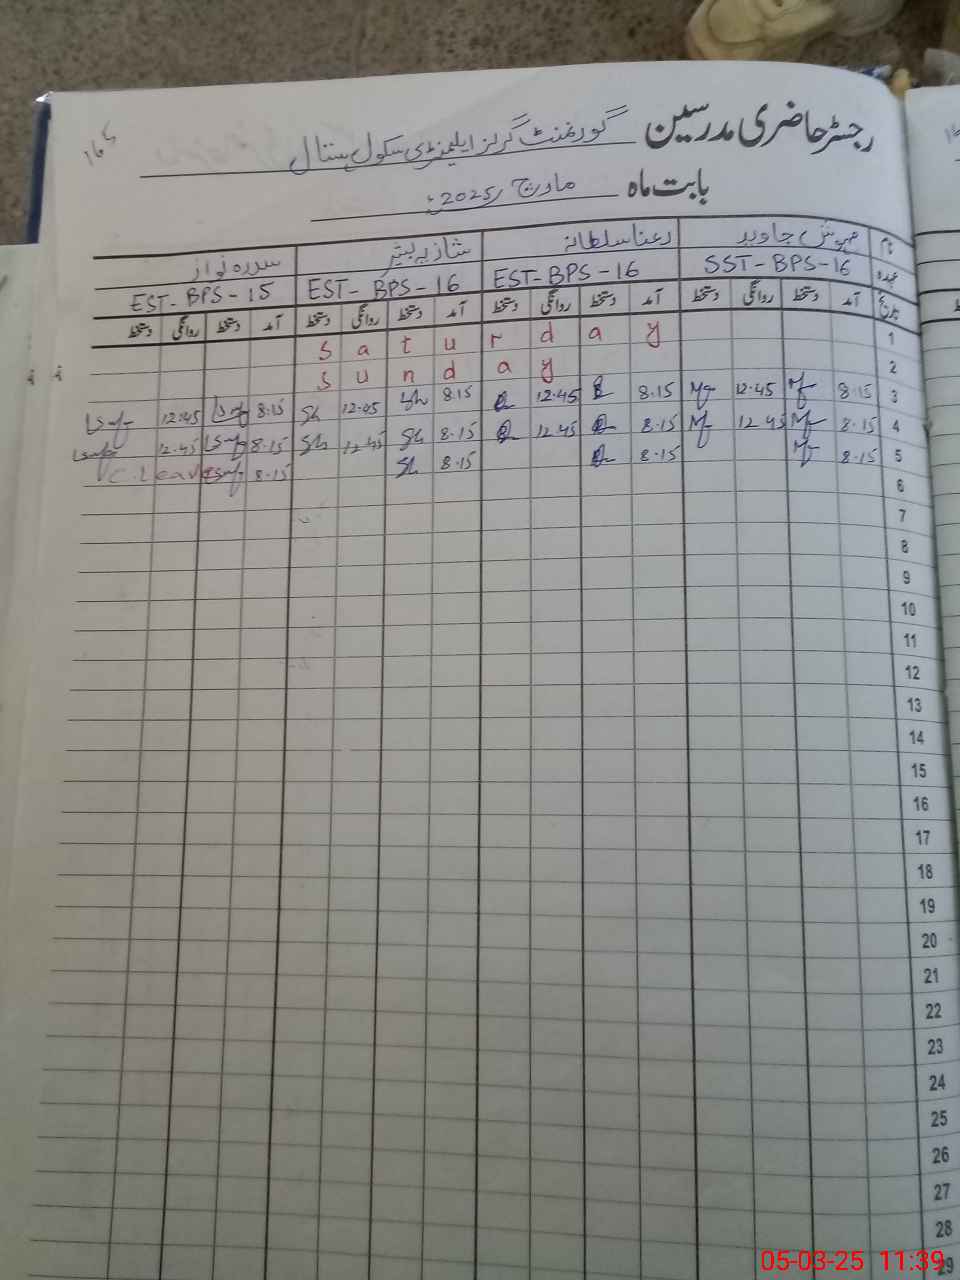 رجسٹر حاضری مدرسین گورنمنٹ گرلز ایلیمنٹری سکول ہستال
بابت ماہ مارچ 2025ء
نام مہوش جاوید رعنا سلطانہ شازیہ بشیر سدرہ نواز
عہدہ SST-BPS-16 EST-BPS-16 EST-BPS-16 EST-BPS-15
تاریخ آمد دستخط روانگی دستخط آمد دستخط روانگی دستخط آمد دستخط روانگی دستخط آمد دستخط روانگی دستخط
1 Saturday
2 Sunday
3 8.15 12.45 8.15 12.45 8.15 12.05 8.15 12.45
4 8.15 12.45 8.15 12.45 8.15 12.45 8.15 12.45
5 8.15 8.15 8.15 8.15 C.Leave
6
7
8
9
10
11
12
13
14
15
16
17
18
19
20
21
22
23
24
25
26
27
28
29
05-03-25 11:39